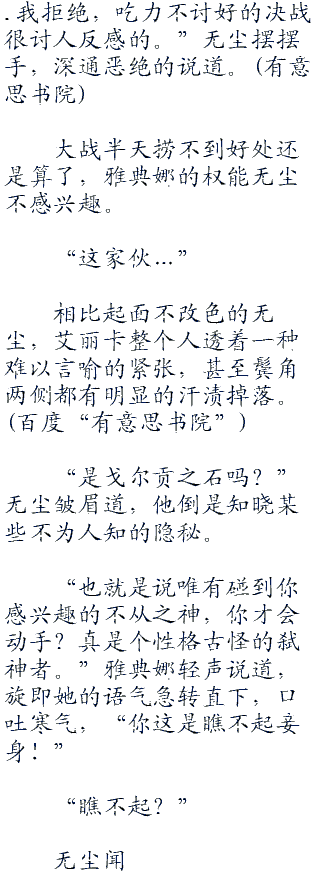 .我拒绝，吃力不讨好的决战
很讨人反感的。”无尘摆摆
手，深通恶绝的说道。(有意
思书院)
大战半天捞不到好处还
是算了，雅典娜的权能无尘
不感兴趣。
“这家伙…”
相比起面不改色的无
尘，艾丽卡整个人透着一种
难以言喻的紧张，甚至鬓角
两侧都有明显的汗渍掉落。
(百度“有意思书院”)
“是戈尔贡之石吗？”
无尘皱眉道，他倒是知晓某
些不为人知的隐秘。
“也就是说唯有碰到你
感兴趣的不从之神，你才会
动手？真是个性格古怪的弑
神者。”雅典娜轻声说道，
旋即她的语气急转直下，口
吐寒气，“你这是瞧不起妾
身！”
“瞧不起？”
无尘闻